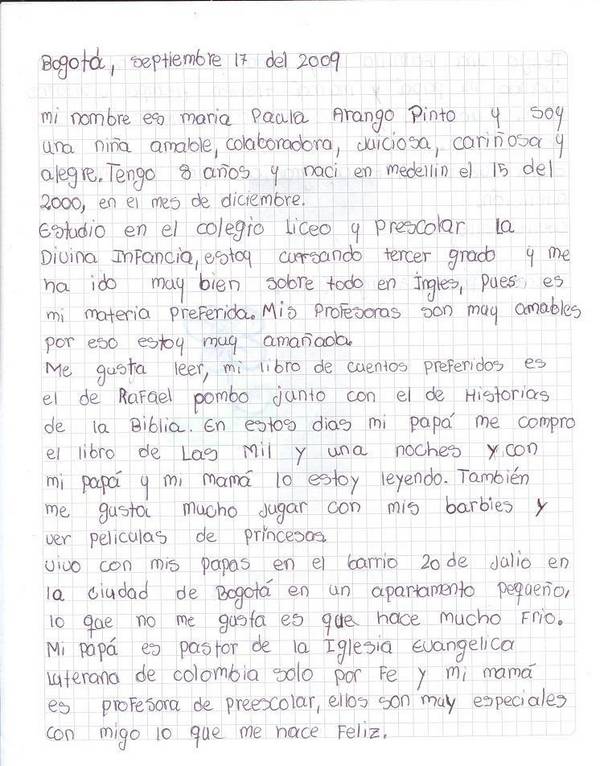 Bogotá, septiembre 17 del 2009
mi nombre es maria Paula Arango Pinto y soy
una niña amable, colaboradora, juiciosa, cariñosa y
alegre. Tengo 8 años y naci en medellin el 15 del
2000, en el mes de diciembre.
Estudio en el colegio Liceo y Prescolar la
Divina Infancia, estoy cursando tercer grado y me
ha ido muy bien sobre todo en Ingles, Pues es
mi materia Preferida. Mis Profesoras son muy amables
por eso estoy muy amañada.
Me gusta leer, mi libro de cuentos preferidos es
el de Rafael pombo junto con el de Historias
de la Biblia. En estos dias mi papá me compro
el libro de Las Mil y una noches y con
mi papá y mi mamá lo estoy leyendo. También
me gusta mucho jugar con mis barbies y
ver peliculas de princesas.
vivo con mis papas en el barrio 20 de Julio en
la ciudad de Bogotá en un apartamento pequeño,
lo que no me gusta es que hace mucho Frio.
Mi papá es pastor de la Iglesia Evangelica
luterana de colombia solo por Fe y mi mamá
es profesora de preescolar, ellos son muy especiales
con migo lo que me hace Feliz.